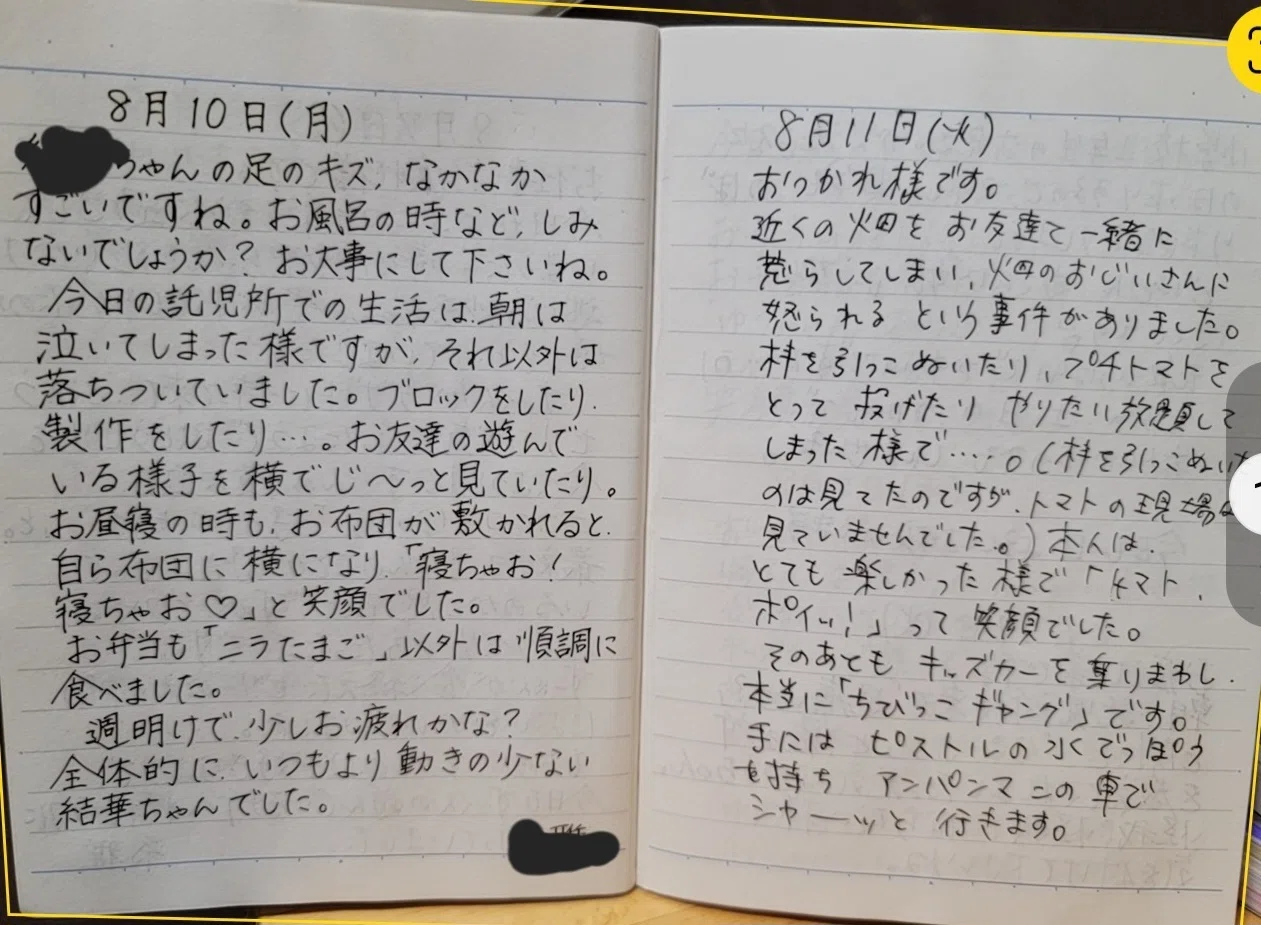 8月10日(月)
ちゃんの足のキズ、なかなか
すごいですね。お風呂の時など、しみ
ないでしょうか?お大事にして下さいね。
今日の託児所での生活は、朝は
泣いてしまった様ですが、それ以外は
落ちついていました。ブロックをしたり、
製作をしたり…。お友達の遊んで
いる様子を横でじ〜っと見ていたり。
お昼寝の時も、お布団が敷かれると、
自ら布団に横になり、「寝ちゃお!
寝ちゃお♡」と笑顔でした。
お弁当も「ニラたまご」以外は順調に
食べました。
週明けで、少しお疲れかな?
全体的に、いつもより動きの少ない
結華ちゃんでした。
8月11日(火)
おつかれ様です。
近くの畑をお友達と一緒に
荒らしてしまい、畑のおじいさんに
怒られるという事件がありました。
杆を引っこぬいたり、プチトマトを
とって投げたりやりたい放題して
しまった様で……。(杆を引っこぬいた
のは見てたのですが、トマトの現場は
見ていませんでした。)本人は、
とても楽しかった様で「トマト、
ポイッ!」って笑顔でした。
そのあともキッズカーを乗りまわし、
本当に「ちびっこギャング」です。
手にはピストルの水でっぽう
を持ちアンパンマンの車で
シャーッと行きます。